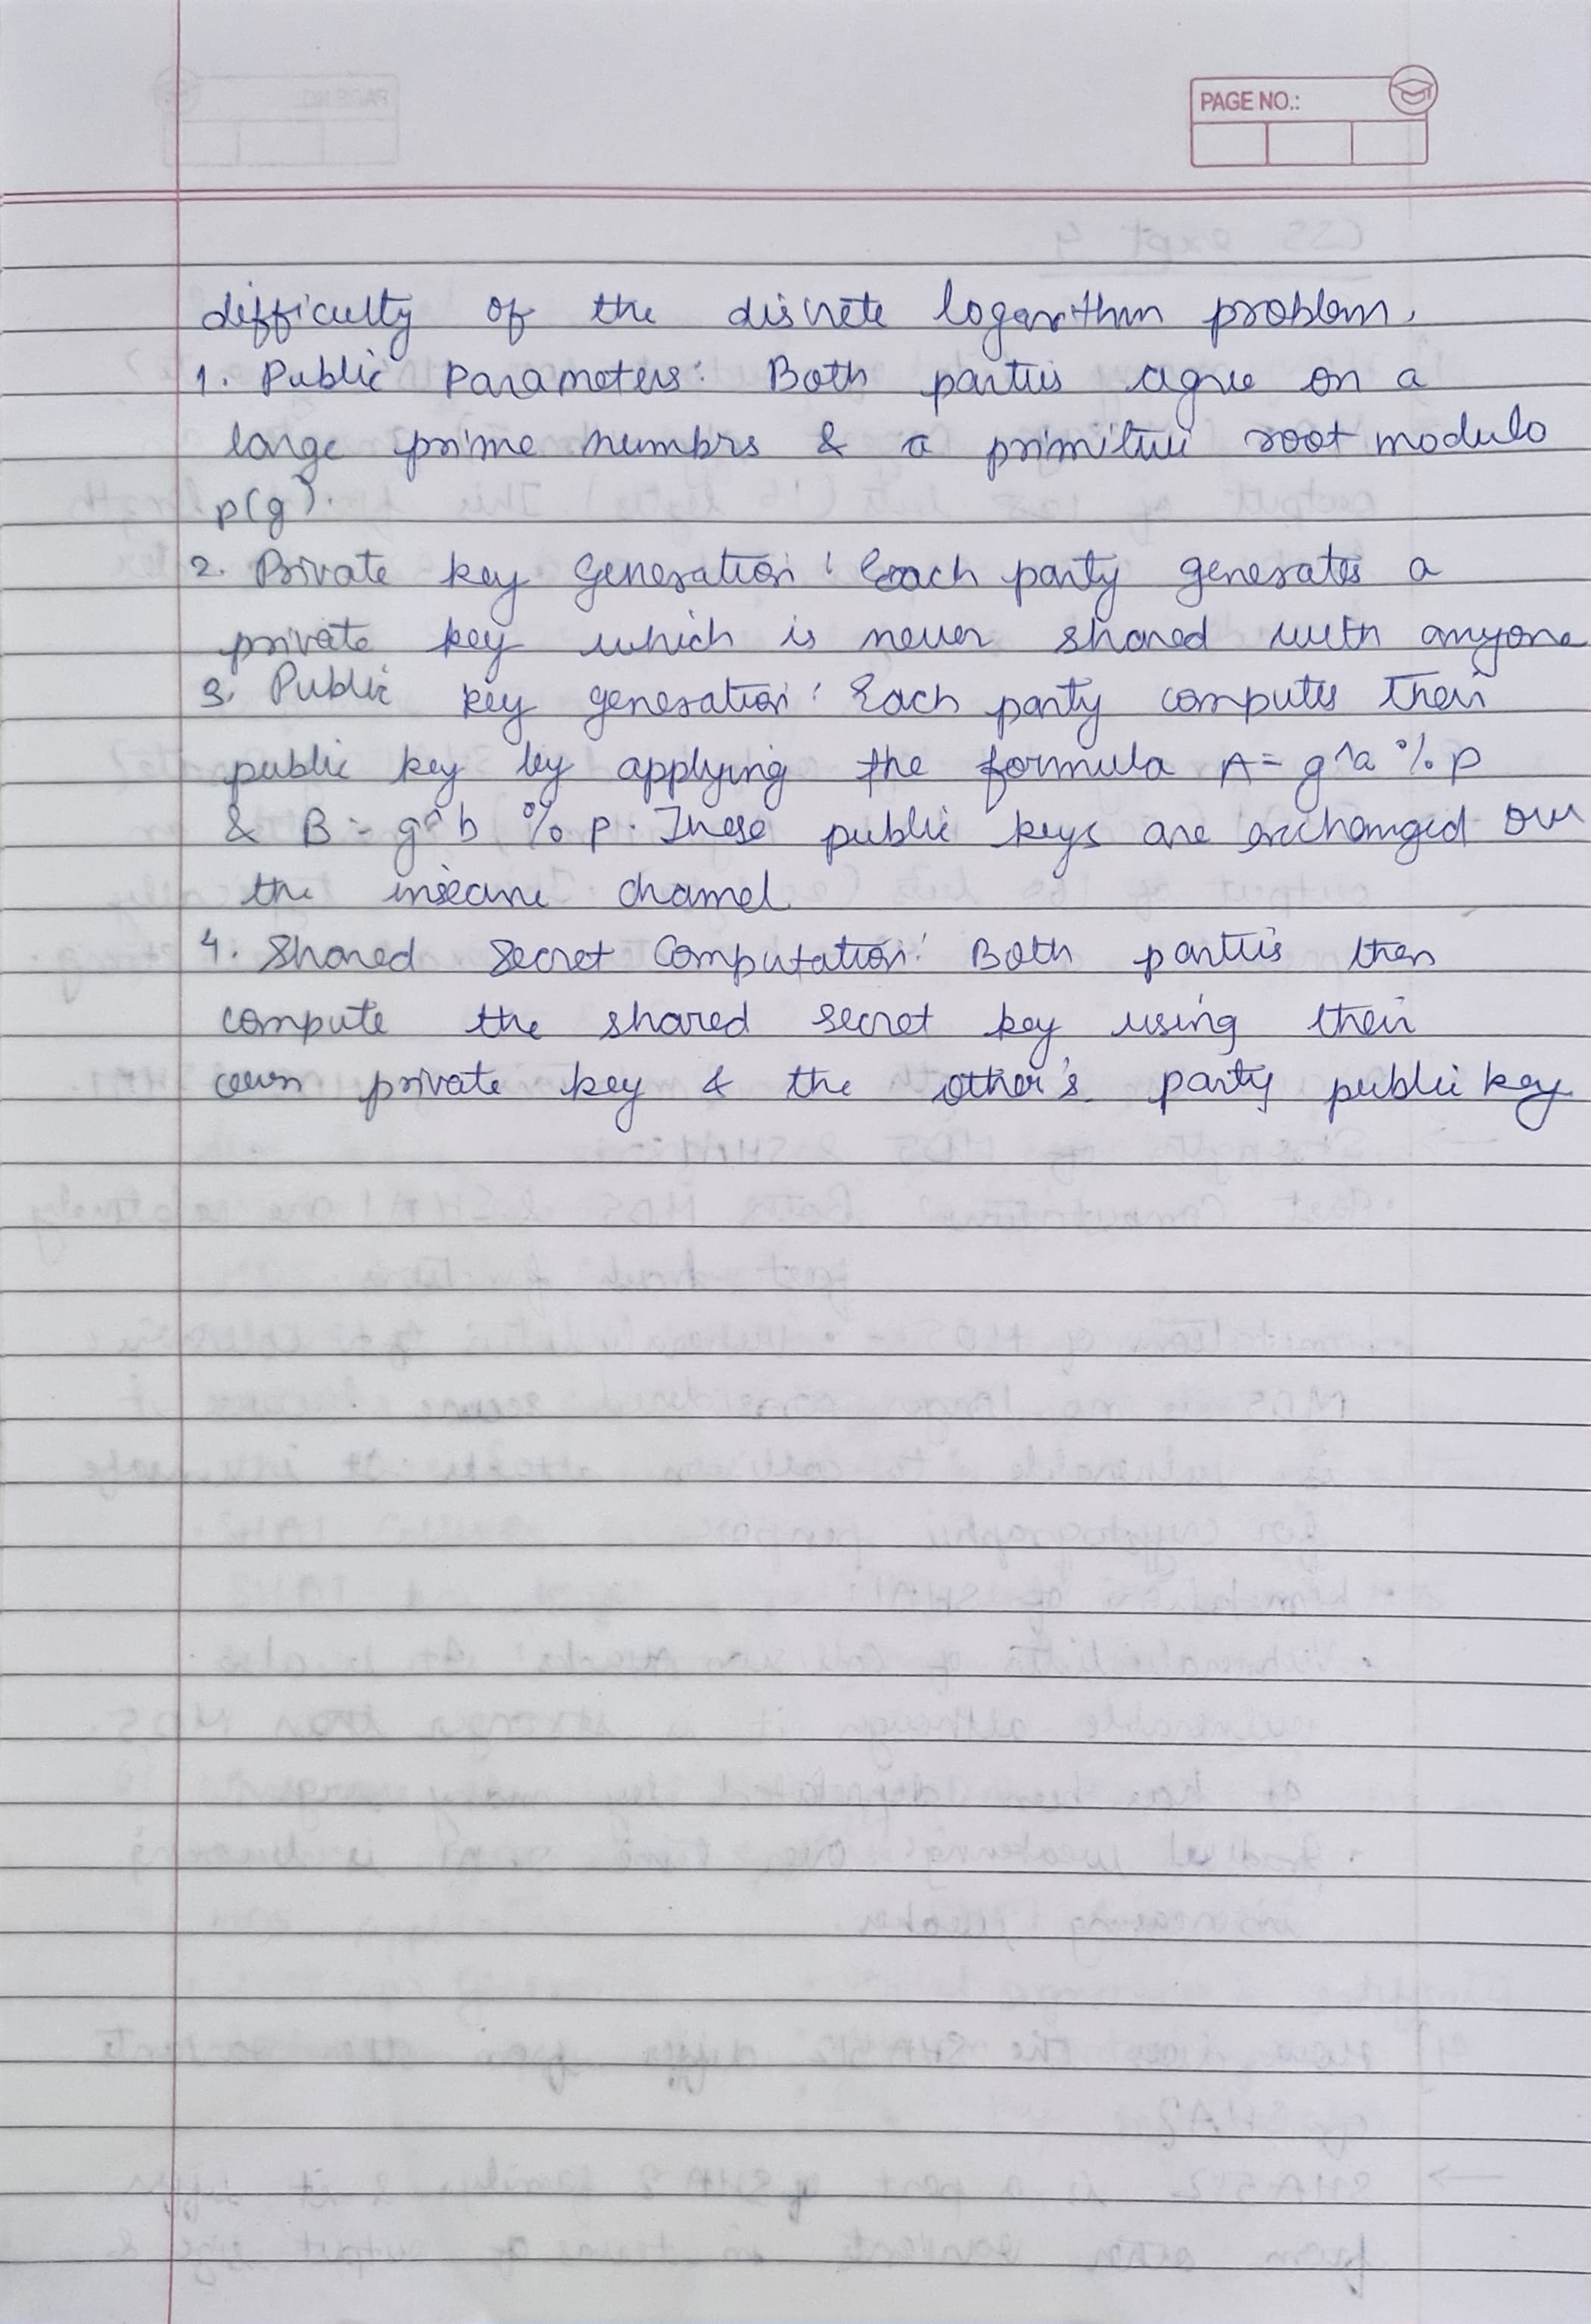 PAGE NO.:
difficulty of the discrete logarithm problem.
1. Public Parameters: Both parties agree on a
large prime numbrs & a primitive root modulo
p(g).
2. Private key Generation: Each party generates a
private key which is never shared with anyone
3. Public key generation: Each party computes their
public key by applying the formula A = g^a % p
& B = g^b % p. These public keys are exchanged over
the insecure channel
4. Shared Secret Computation: Both parties then
compute the shared secret key using their
own private key & the other's party public key